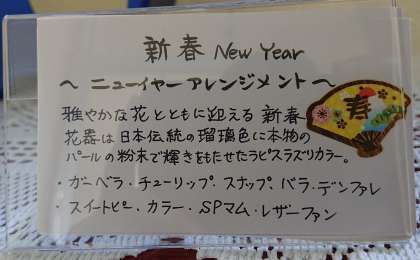 新春 New Year
～ ニューイヤーアレンジメント ～
雅やかな花とともに迎える 新春
花器は日本伝統の瑠璃色に本物の
パールの粉末で輝きをもたせたラピスラズリカラー。
・ガーベラ・チューリップ・スナップ・バラ・デンファレ
・スイートピー・カラー・SPマム・レザーファン
寿